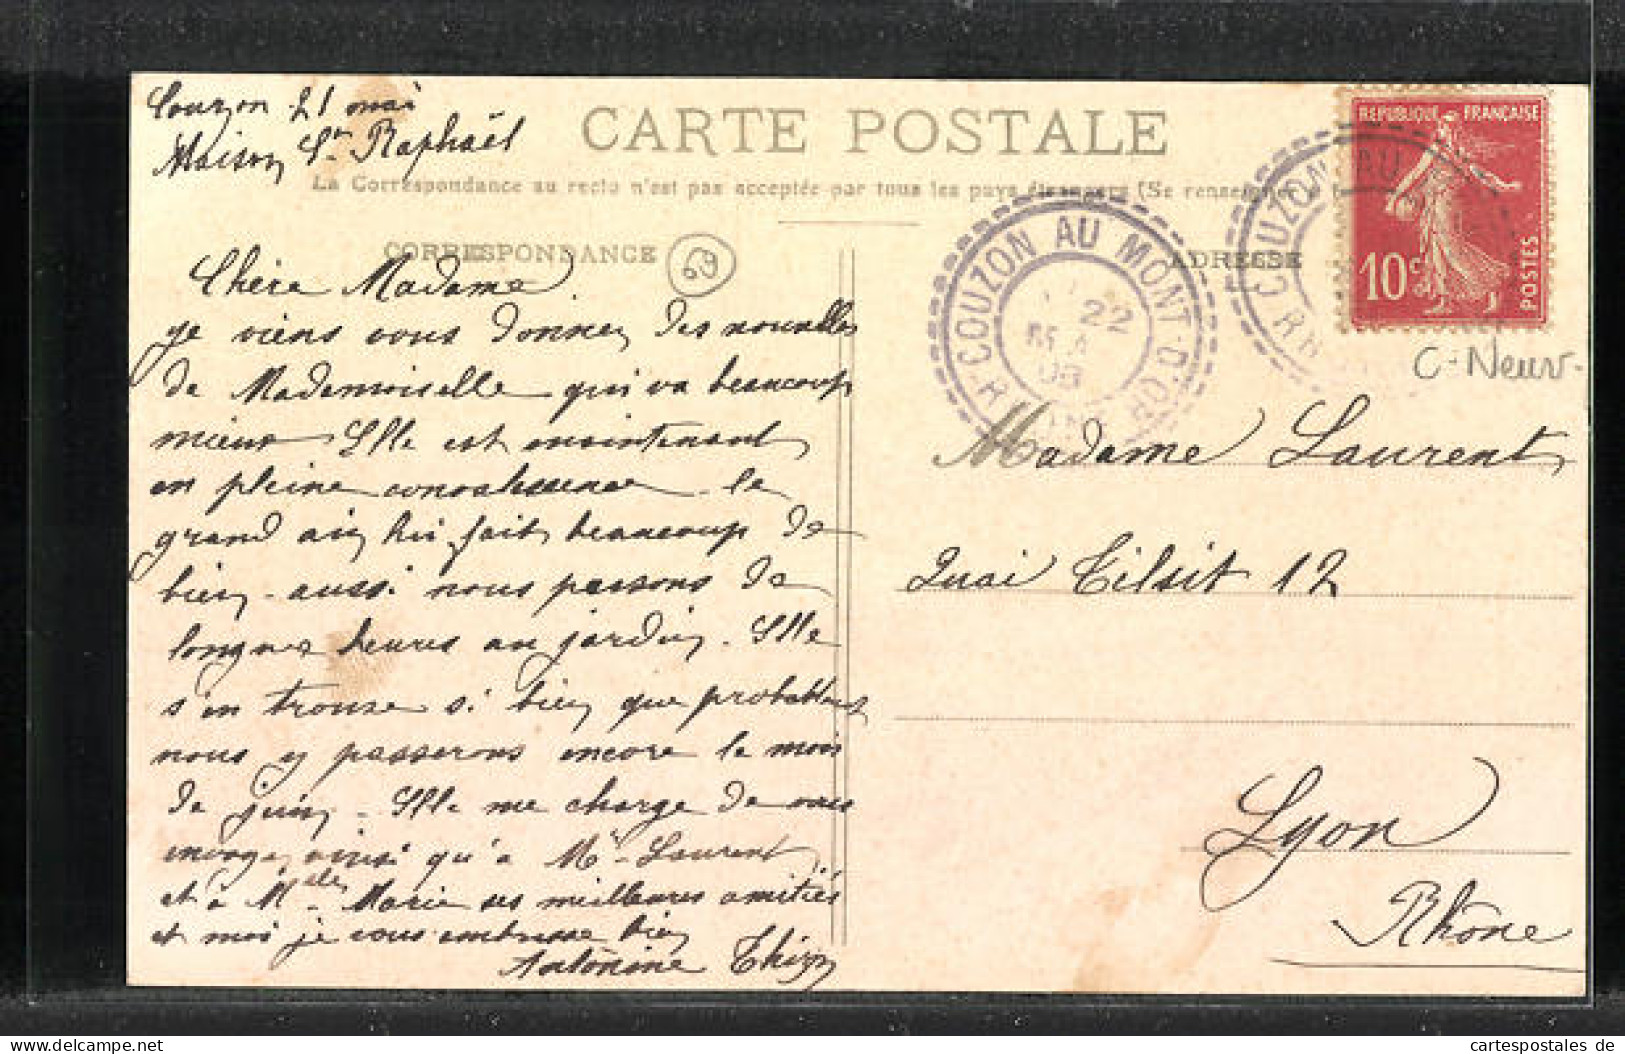 Couzon 21 mai
Maison St Raphaël
CARTE POSTALE
La Correspondance au recto n'est pas acceptée par tous les pays étrangers (Se renseigner à la
CORRESPONDANCE
69
ADRESSE
Chère Madame
je viens vous donner des nouvelles
de Mademoiselle qui va beaucoup
mieux Elle est maintenant
en pleine le
grand air lui fait beaucoup de
bien aussi nous passons de
longues heures au jardin. Elle
s'en trouve si bien que probablement
nous y passerons encore le mois
de juin. Elle me charge de vous
envoyer ainsi qu'à Mr Laurent
et à Melle Marie ses meilleures amitiés
et moi je vous embrasse bien
Antonine
COUZON AU MONT-D'OR
RHONE
22
MAI
COUZON AU
REPUBLIQUE FRANÇAISE
10c
POSTES
C-Neuv.
Madame Laurent
Quai Tilsit 12
Lyon
Rhône
cartespostales de
www.delcampe.net